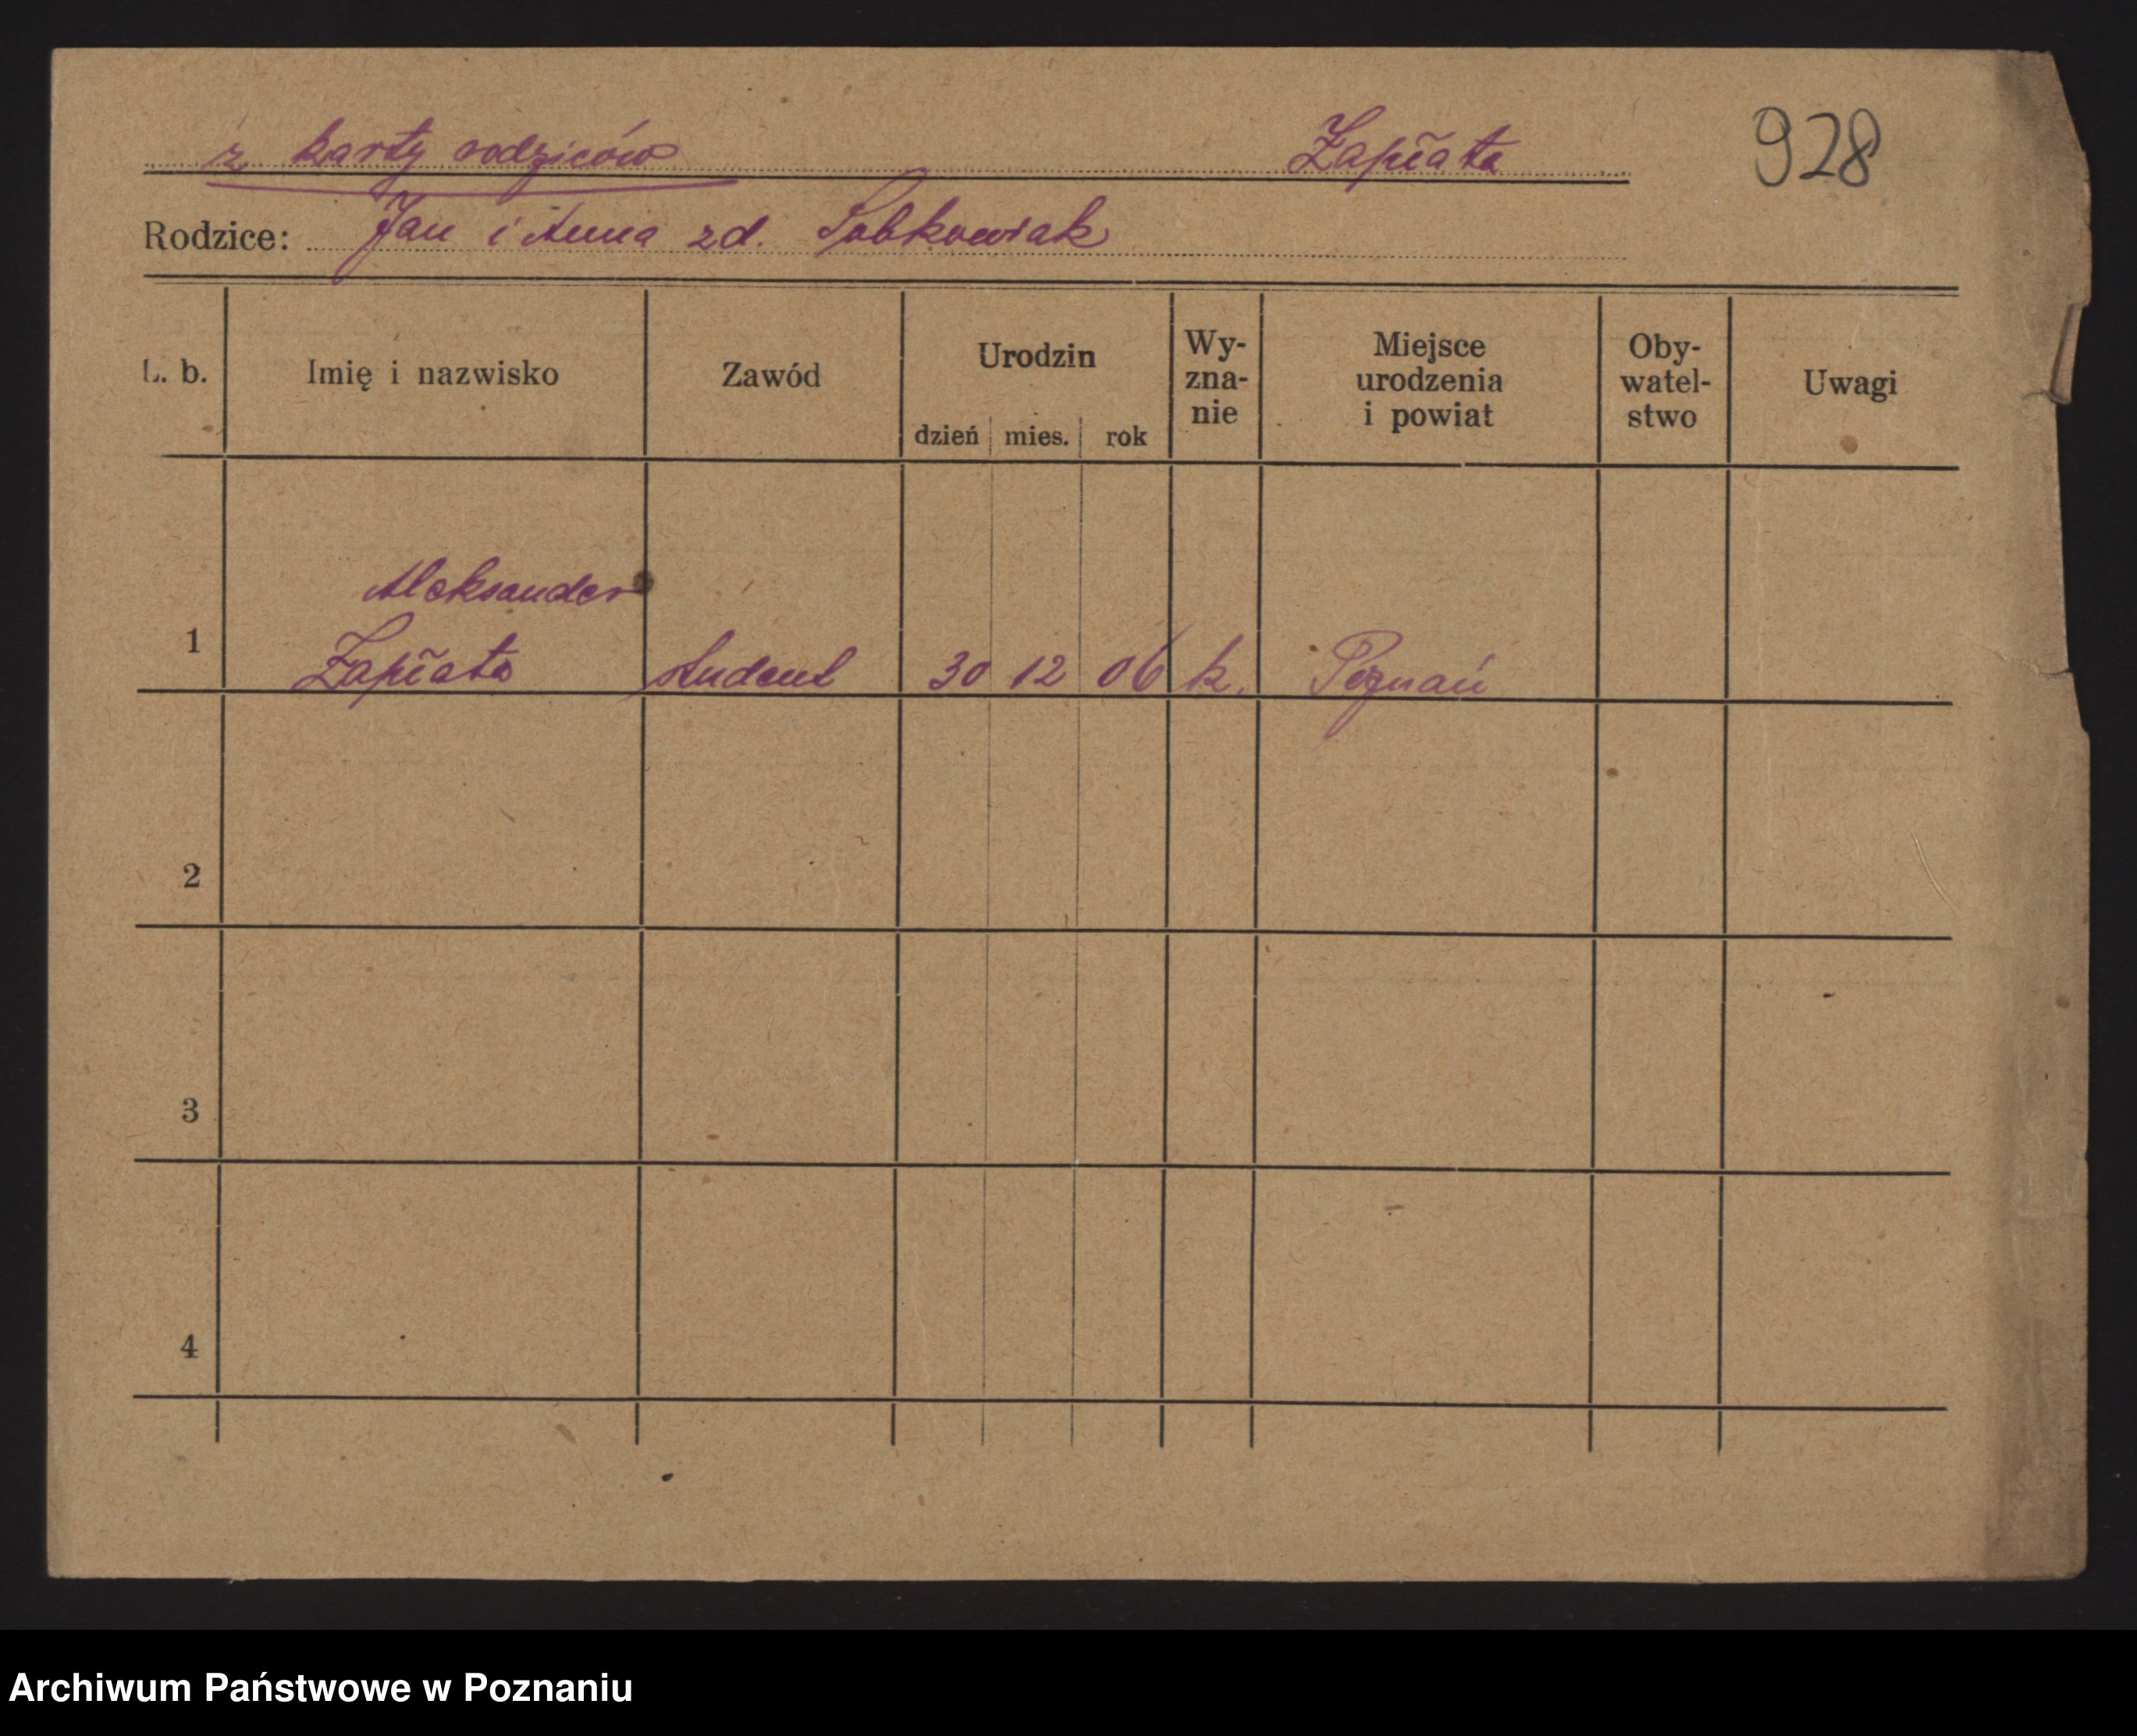 z karty rodziców Zapłata 928
Rodzice: Jan i Anna zd. Sobkowiak
L. b. Imię i nazwisko Zawód Urodzin dzień mies. rok Wy-zna-nie Miejsce urodzenia i powiat Oby-watel-stwo Uwagi
Aleksander
1 Zapłata student 30 12 06 k. Poznań
2
3
4
Archiwum Państwowe w Poznaniu